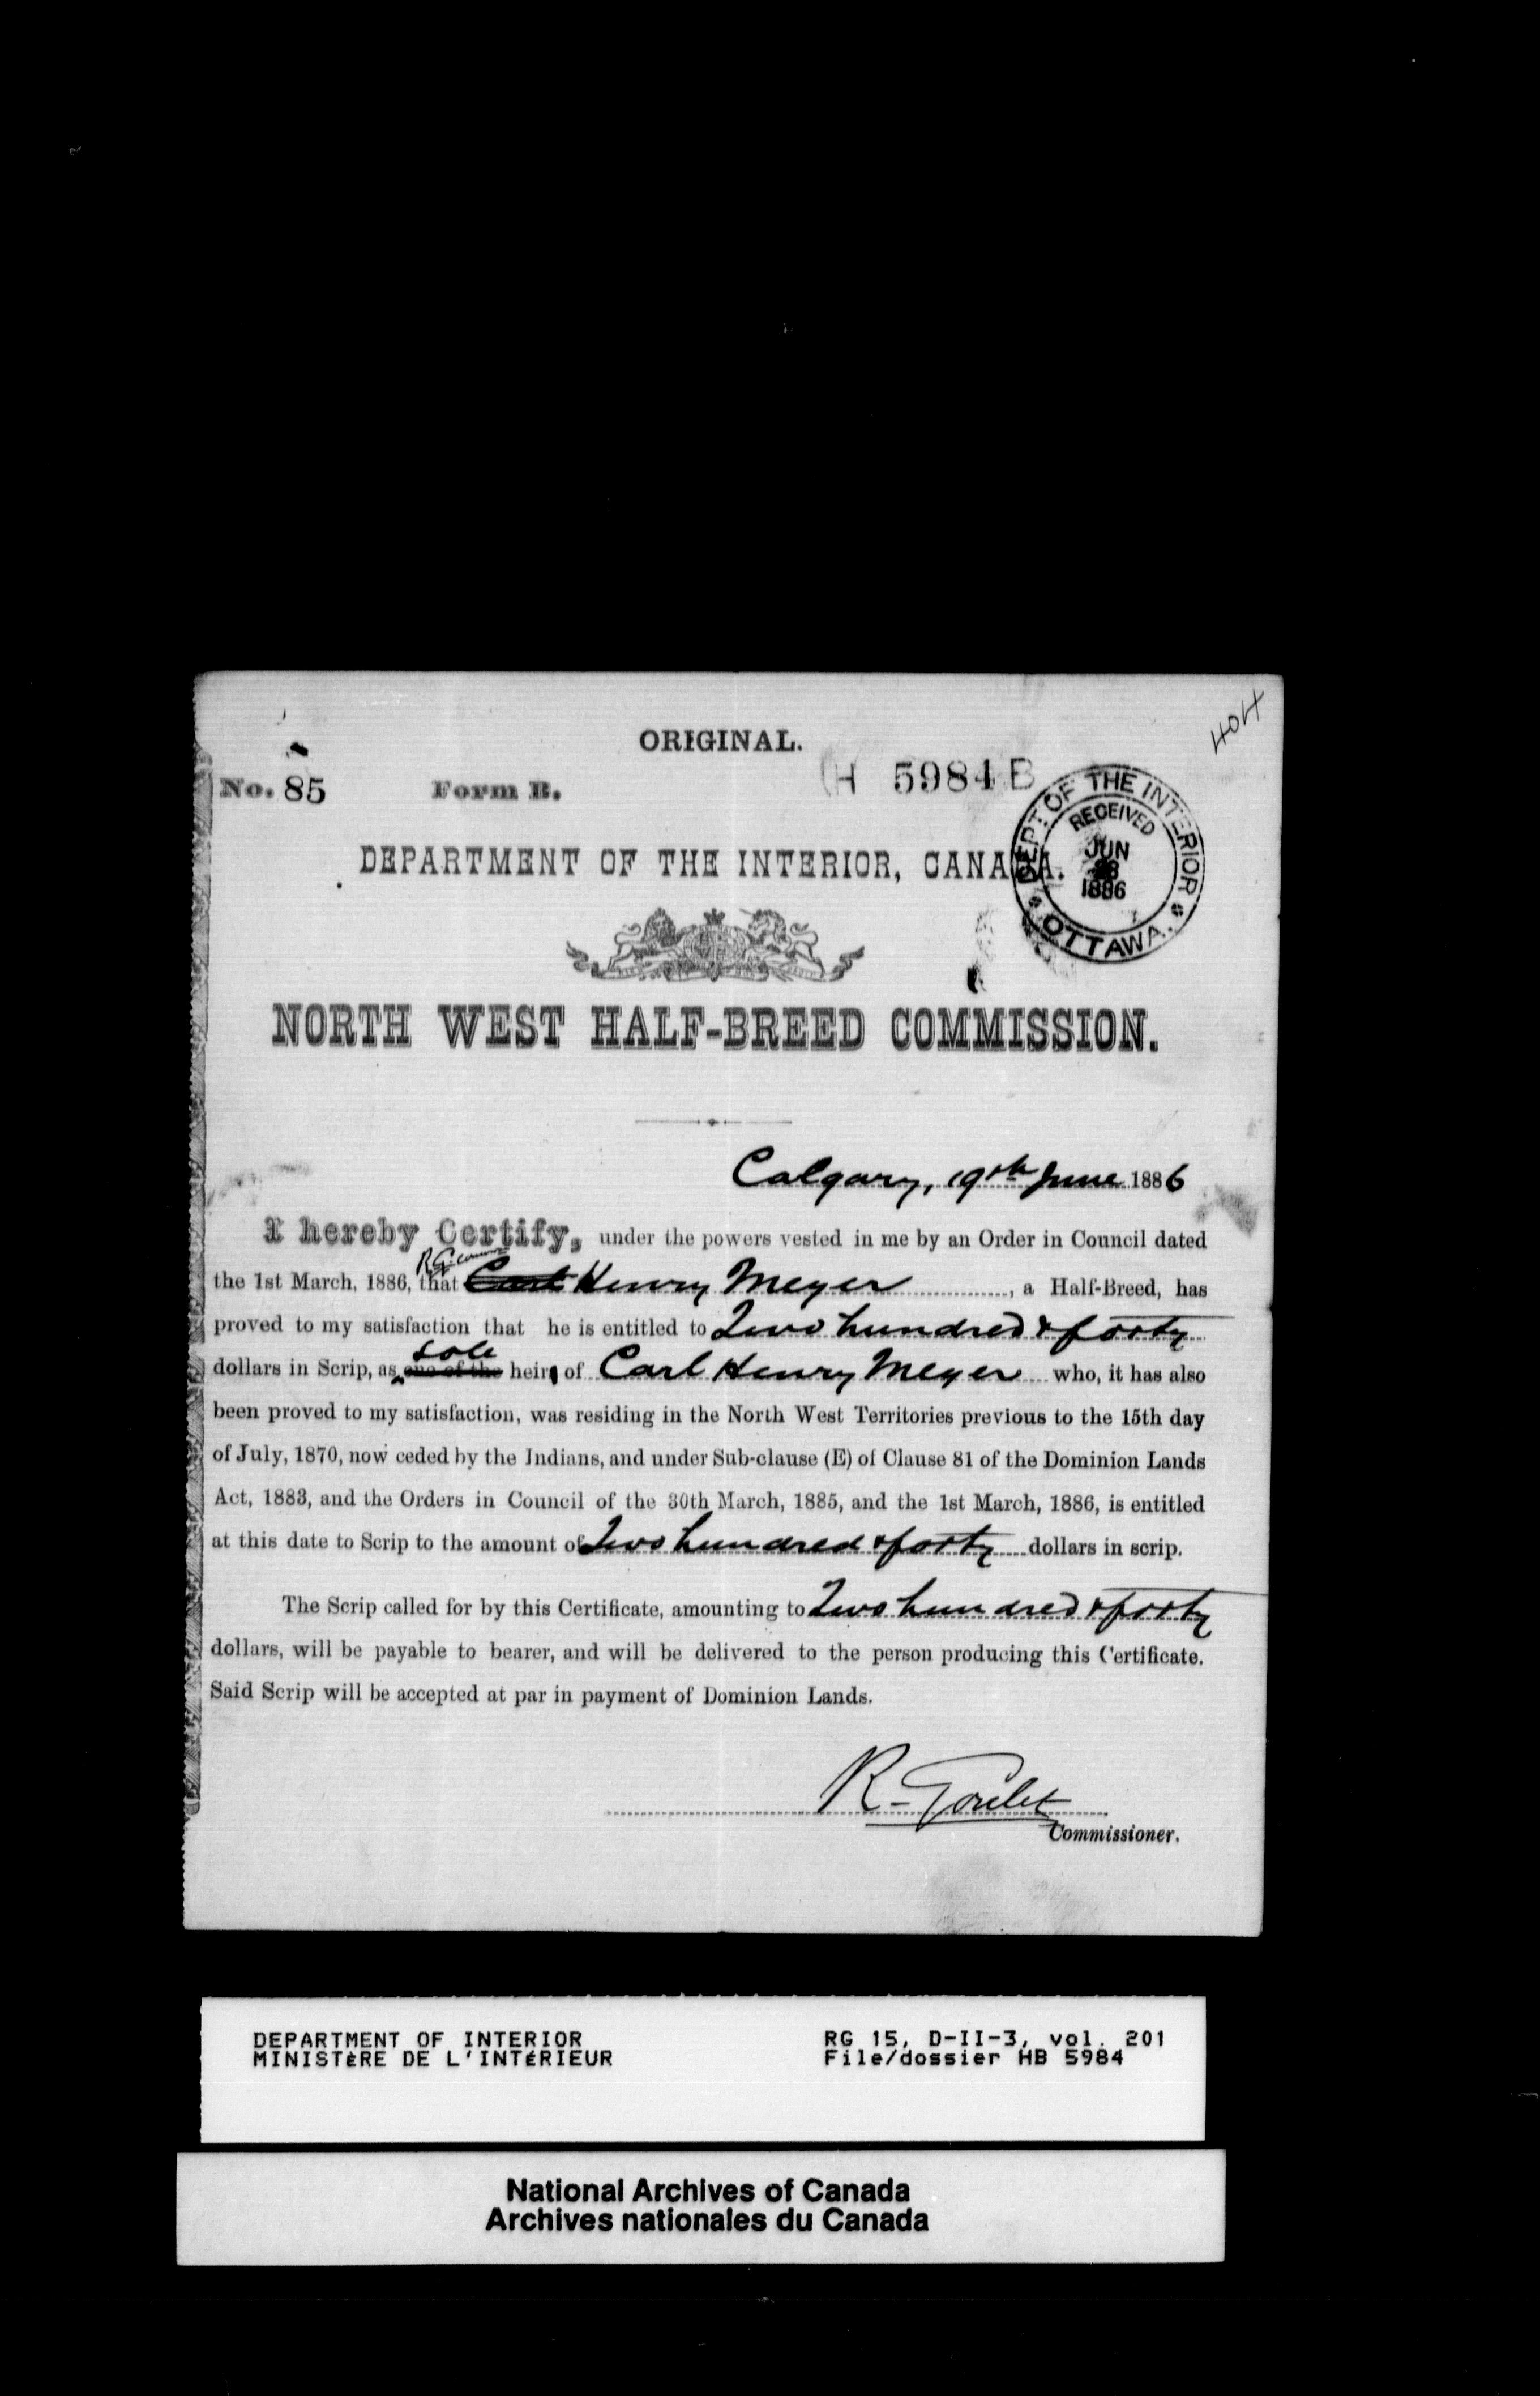 404
ORIGINAL.
No. 85 Form B. H 5984 B
DEPT. OF THE INTERIOR
RECEIVED
JUN
1886
OTTAWA.
DEPARTMENT OF THE INTERIOR, CANADA.
NORTH WEST HALF-BREED COMMISSION.
Calgary, 19th June 1886
I hereby Certify, under the powers vested in me by an Order in Council dated
R.G.
the 1st March, 1886, that Carl Henry Meyer, a Half-Breed, has
proved to my satisfaction that he is entitled to Two hundred & forty
sole
dollars in Scrip, as one of the heir of Carl Henry Meyer who, it has also
been proved to my satisfaction, was residing in the North West Territories previous to the 15th day
of July, 1870, now ceded by the Indians, and under Sub-clause (E) of Clause 81 of the Dominion Lands
Act, 1883, and the Orders in Council of the 30th March, 1885, and the 1st March, 1886, is entitled
at this date to Scrip to the amount of Two hundred & forty dollars in scrip.
The Scrip called for by this Certificate, amounting to Two hundred & forty
dollars, will be payable to bearer, and will be delivered to the person producing this Certificate.
Said Scrip will be accepted at par in payment of Dominion Lands.
R. Goulet
Commissioner.
DEPARTMENT OF INTERIOR RG 15, D-II-3, vol. 201
MINISTÈRE DE L'INTÉRIEUR File/dossier HB 5984
National Archives of Canada
Archives nationales du Canada